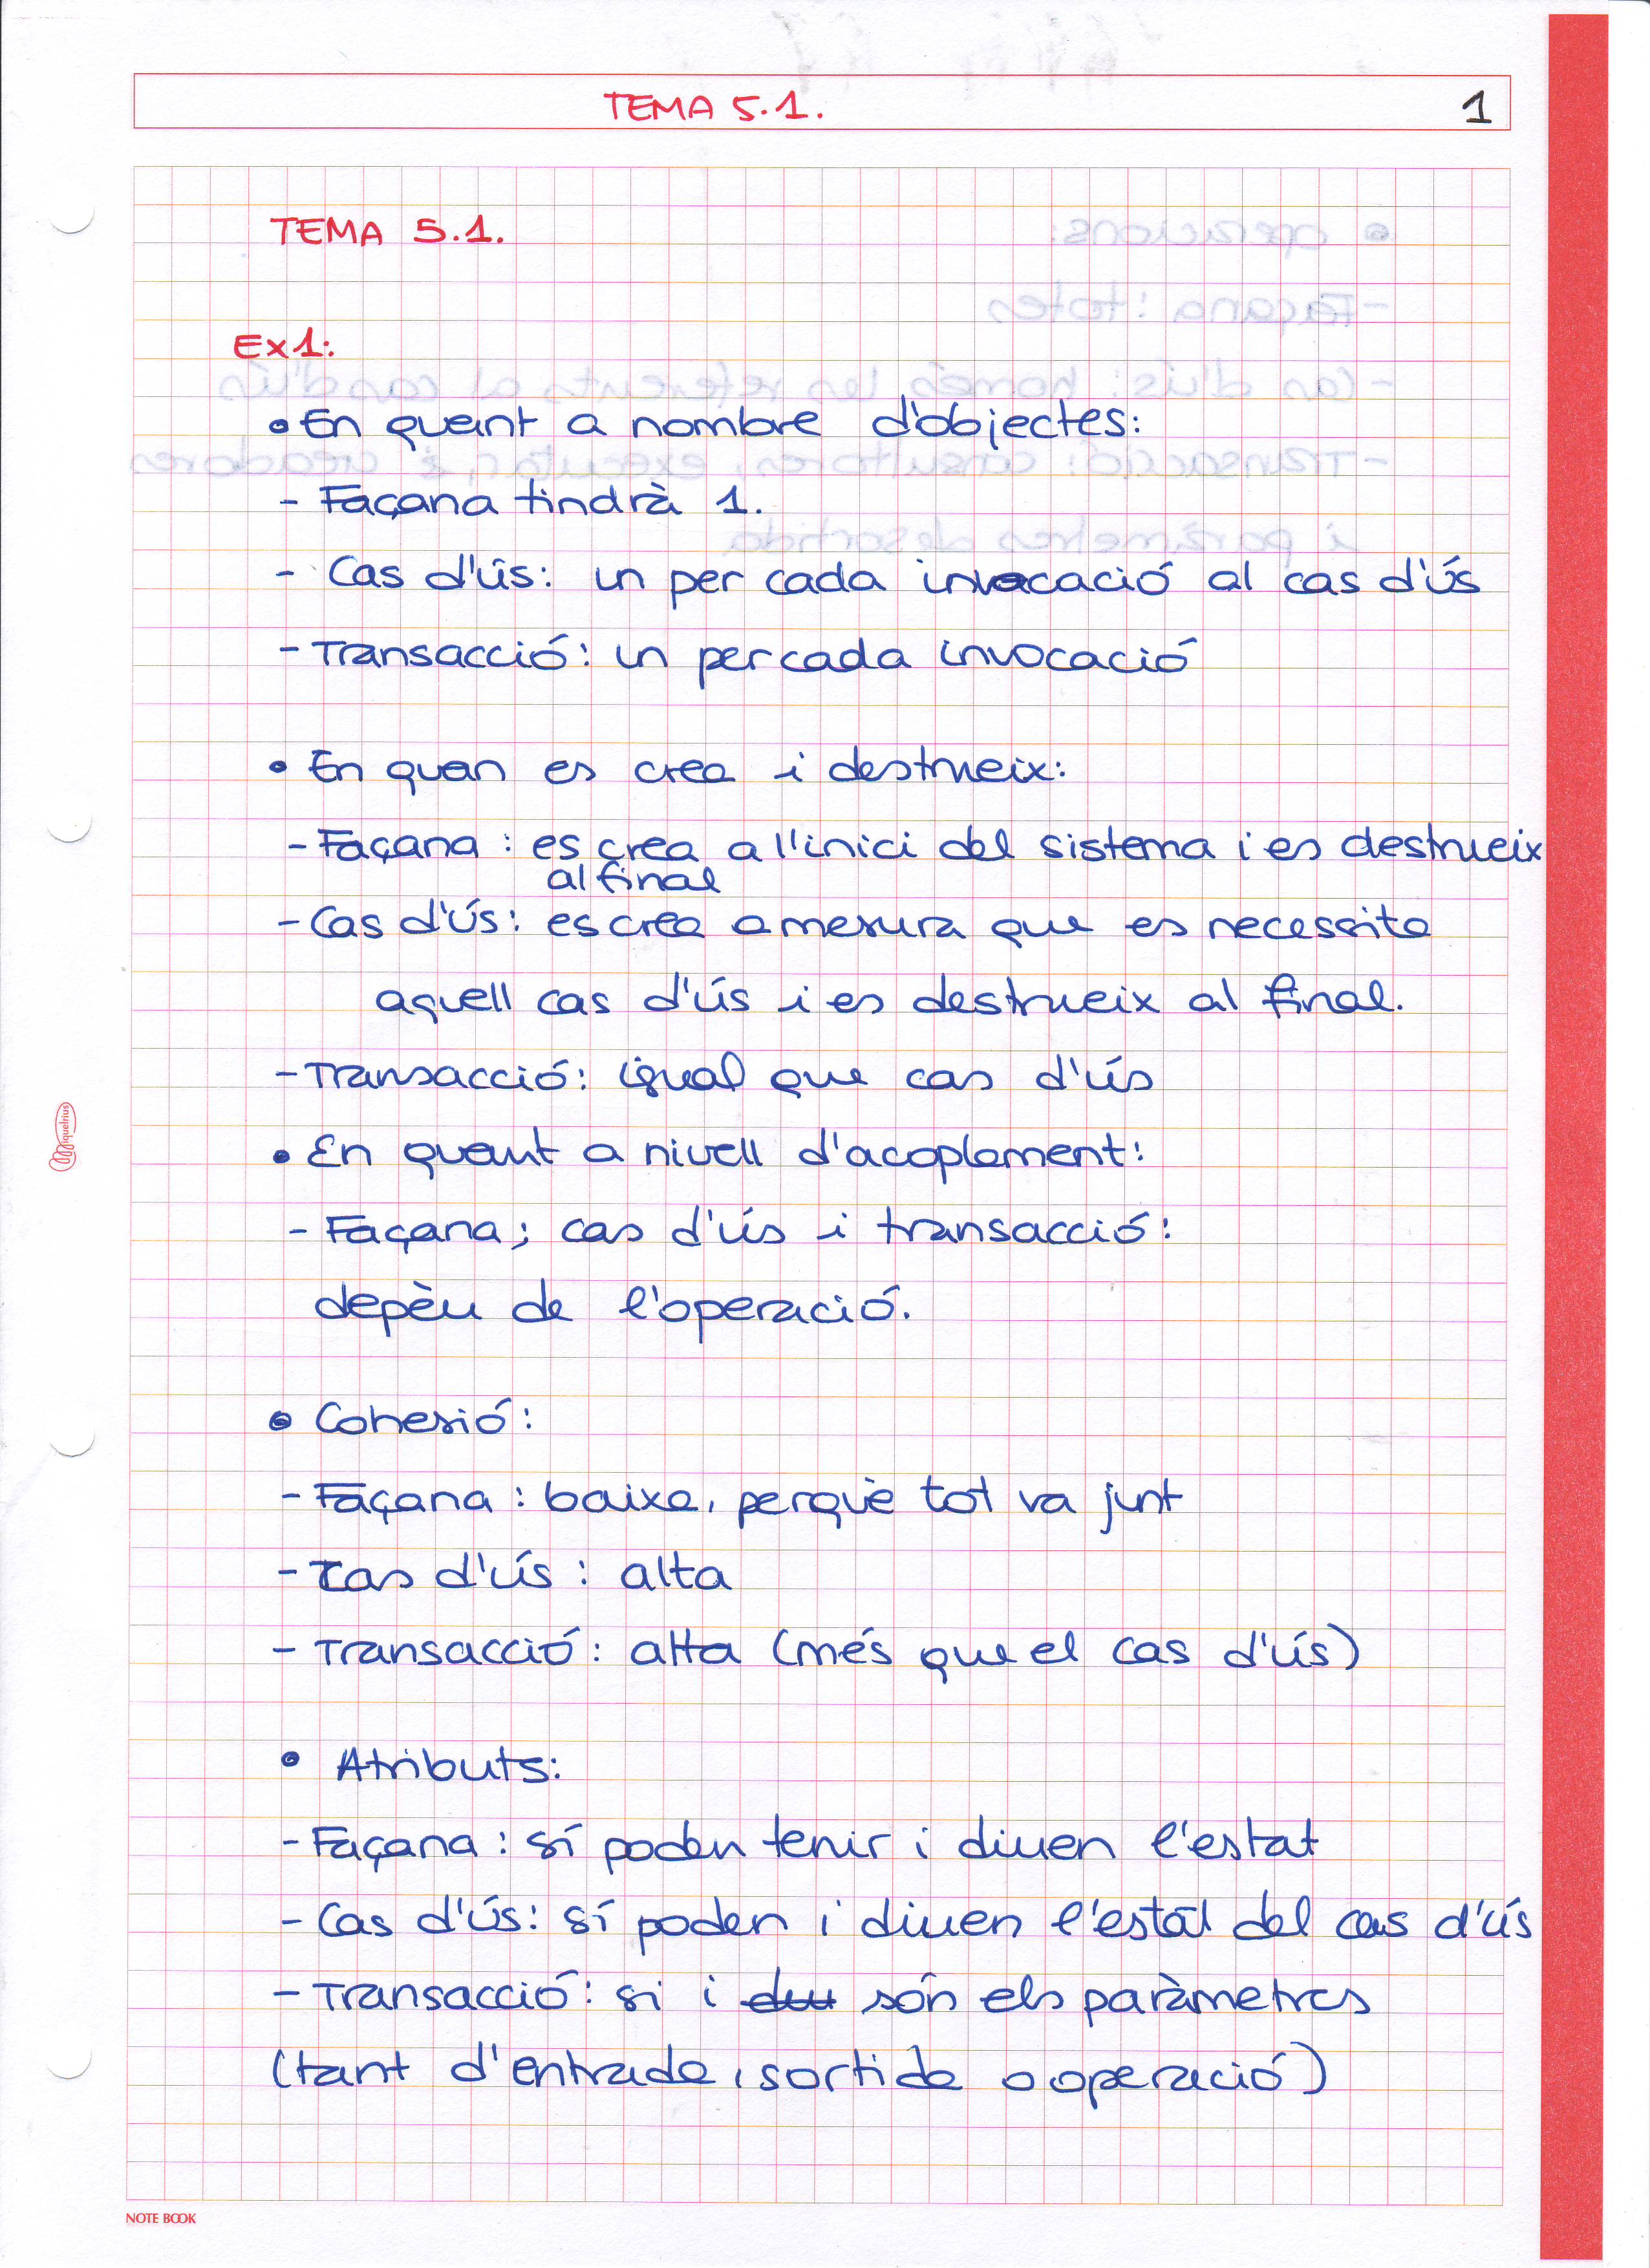 TEMA 5.1.
1
TEMA 5.1.
Ex1:
• En quant a nombre d'objectes:
- Façana tindrà 1.
- Cas d'ús: un per cada invocació al cas d'ús
- Transacció: un per cada invocació
• En quan es crea i destrueix:
- Façana: es crea a l'inici del sistema i es destrueix
al final
- Cas d'ús: es crea a mesura que es necessita
aquell cas d'ús i es destrueix al final.
- Transacció: igual que cas d'ús
• En quant a nivell d'acoplament:
- Façana; cas d'ús i transacció:
depèn de l'operació.
• Cohesió:
- Façana: baixa, perquè tot va junt
- Cas d'ús: alta
- Transacció: alta (més que el cas d'ús)
• Atributs:
- Façana: sí poden tenir i diuen l'estat
- Cas d'ús: sí poden i diuen l'estat del cas d'ús
- Transacció: si i són els paràmetres
(tant d'entrada, sortida o operació)
miquelrius
NOTE BOOK
• operacions:
- Façana: totes
- Cas d'ús: només les referents al cas d'ús
- Transacció: consultores, executar, i creadores
i paràmetres de sortida